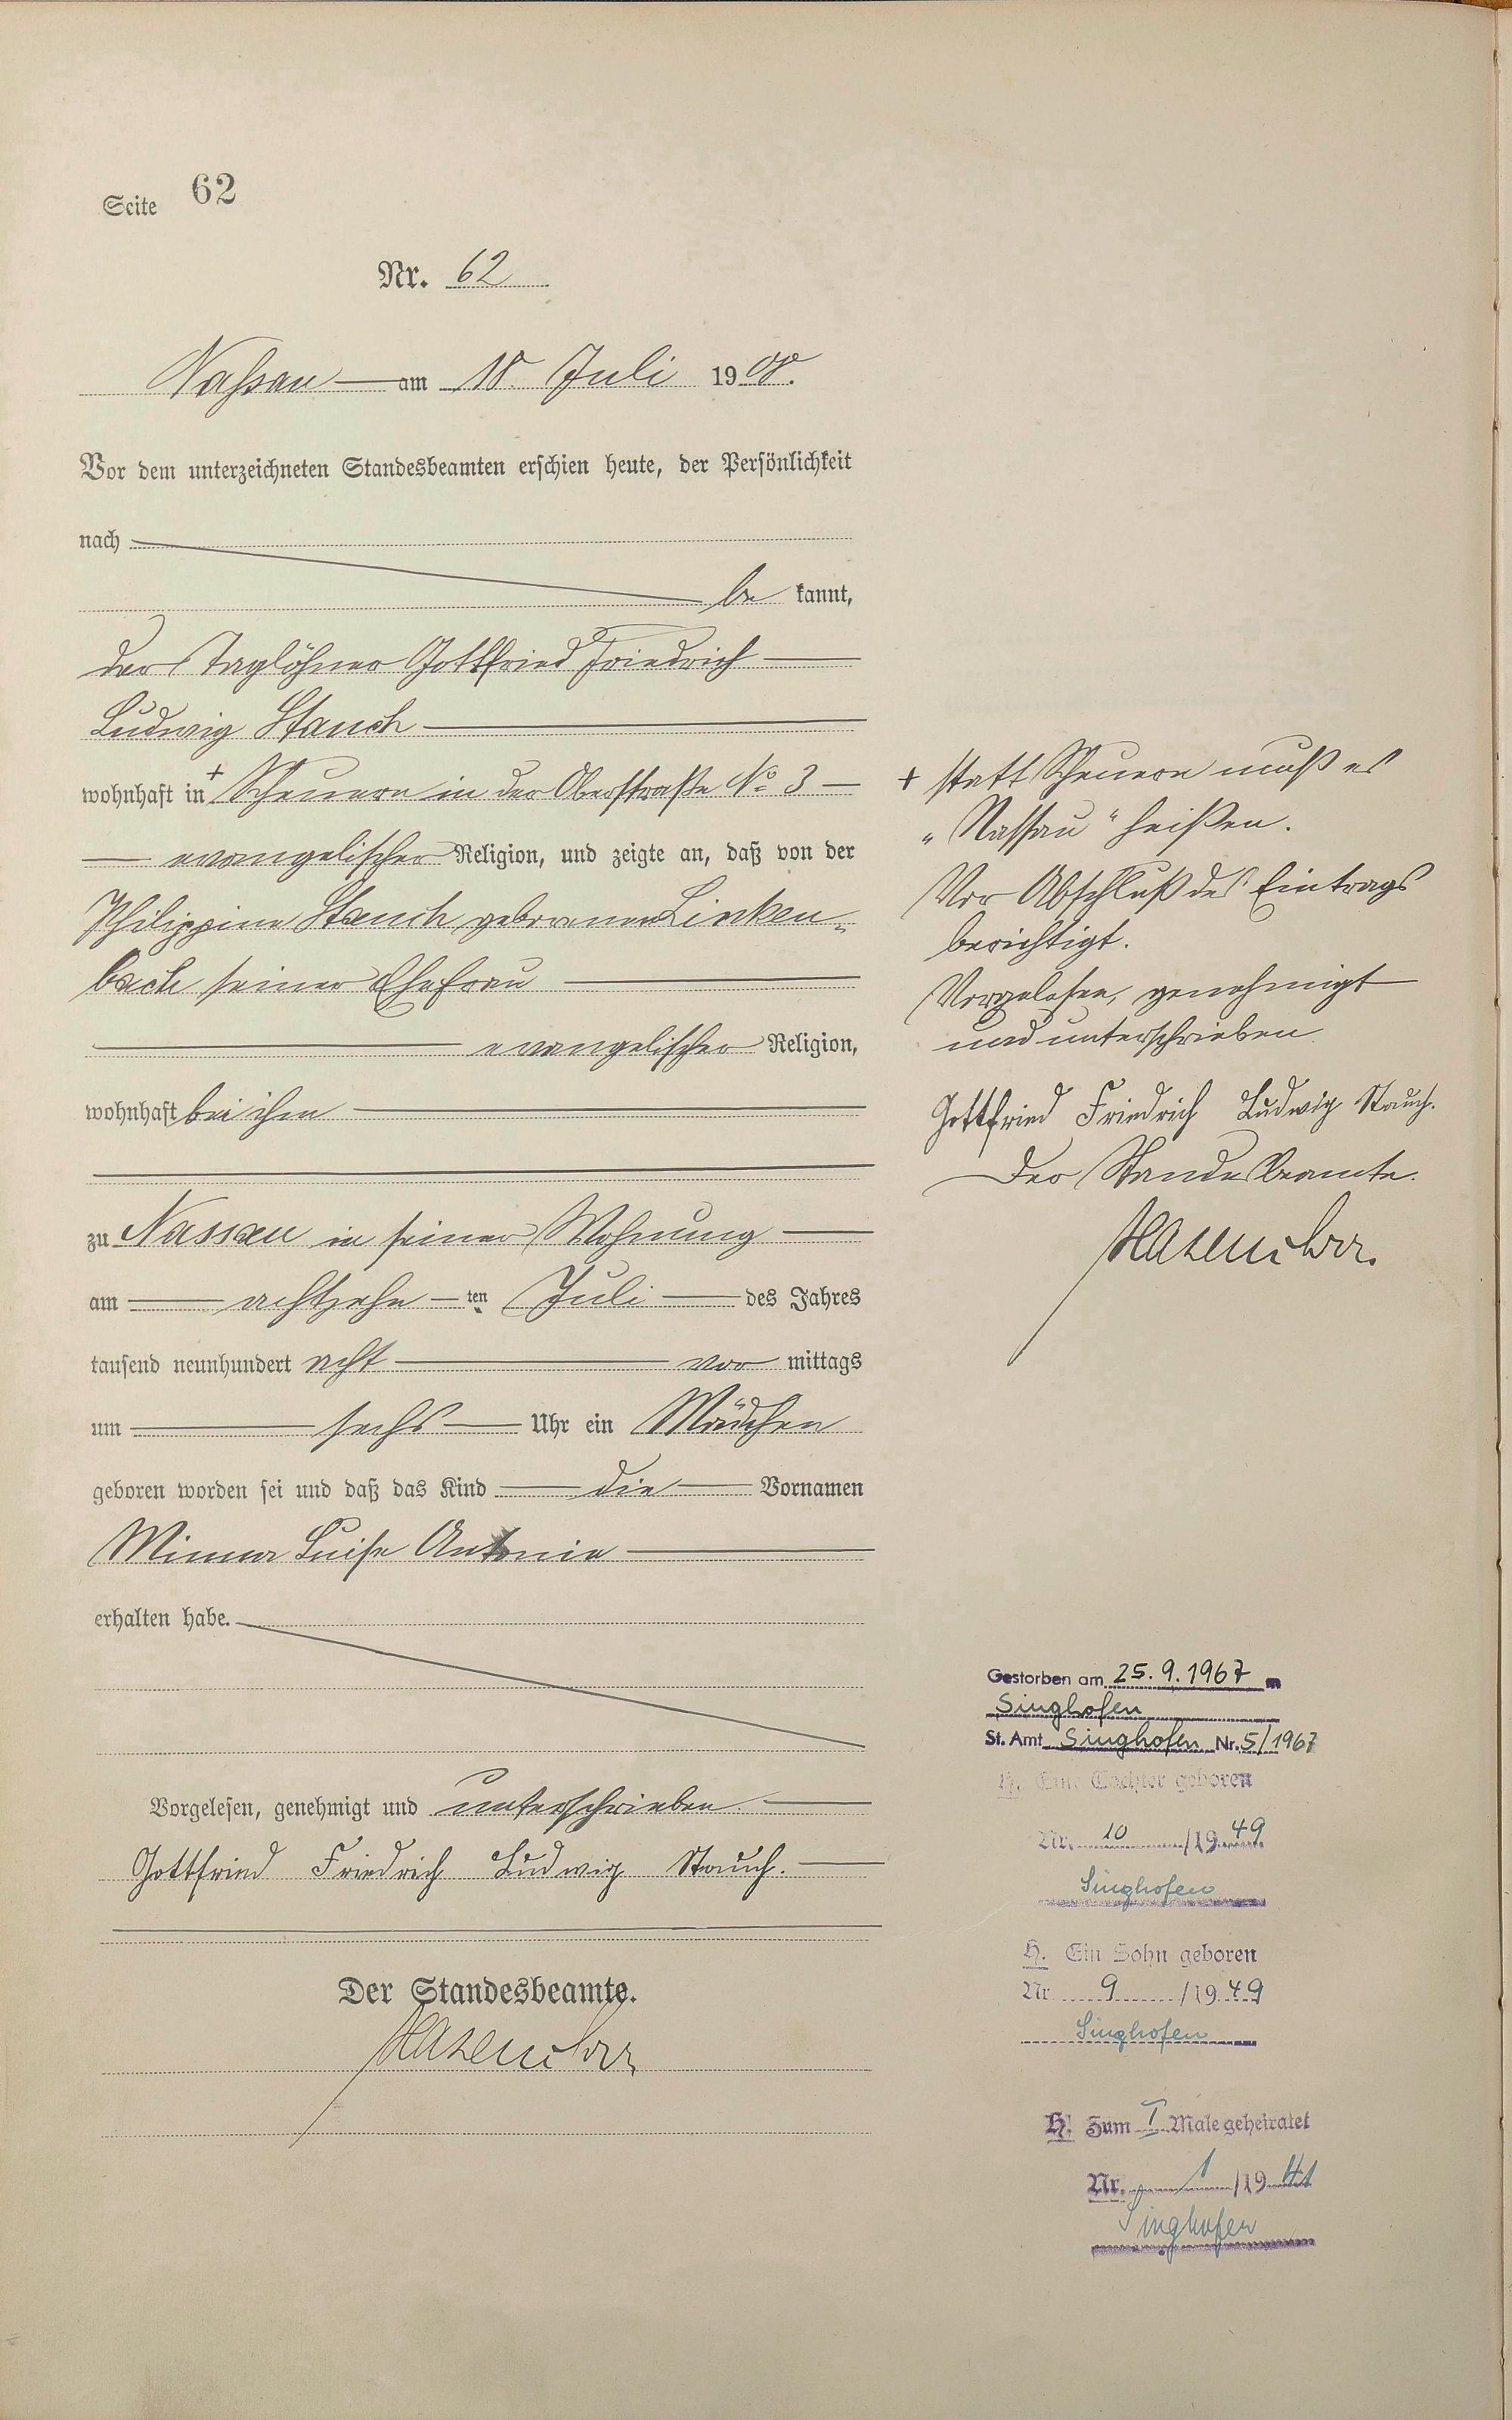 Seite 62
Nr. 62
Nassau am 18. Juli 1908.
Vor dem unterzeichneten Standesbeamten erschien heute, der Persönlichkeit
nach
be kannt,
der Taglöhner Gottfried Friedrich
Ludwig Stauch
wohnhaft in + Scheuern in der Oberstraße No 3
evangelischer Religion, und zeigte an, daß von der
Philippine Stauch geborenen Linken-
bach seiner Ehefrau
evangelischer Religion,
wohnhaft bei ihm
zu Nassau in seiner Wohnung
am achtzehn ten Juli des Jahres
tausend neunhundert acht vor mittags
um sechs Uhr ein Mädchen
geboren worden sei und daß das Kind die Vornamen
Minna Luise Antonie
erhalten habe.
Vorgelesen, genehmigt und unterschrieben.
Gottfried Friedrich Ludwig Stauch.
Der Standesbeamte.
+ statt Scheuern muß es
„Nassau" heißen.
Vor Abschluß des Eintrags
berichtigt.
Vorgelesen, genehmigt
und unterschrieben
Gottfried Friedrich Ludwig Stauch.
Der Standesbeamte.
Gestorben am 25.9.1967 in
Singhofen
St. Amt Singhofen Nr. 5/1967
H. Eine Tochter geboren
Nr. 10 /1949
Singhofen
H. Ein Sohn geboren
Nr 9 /1949
Singhofen
H. Zum I Male geheiratet
Nr. 1 /1941
Singhofen